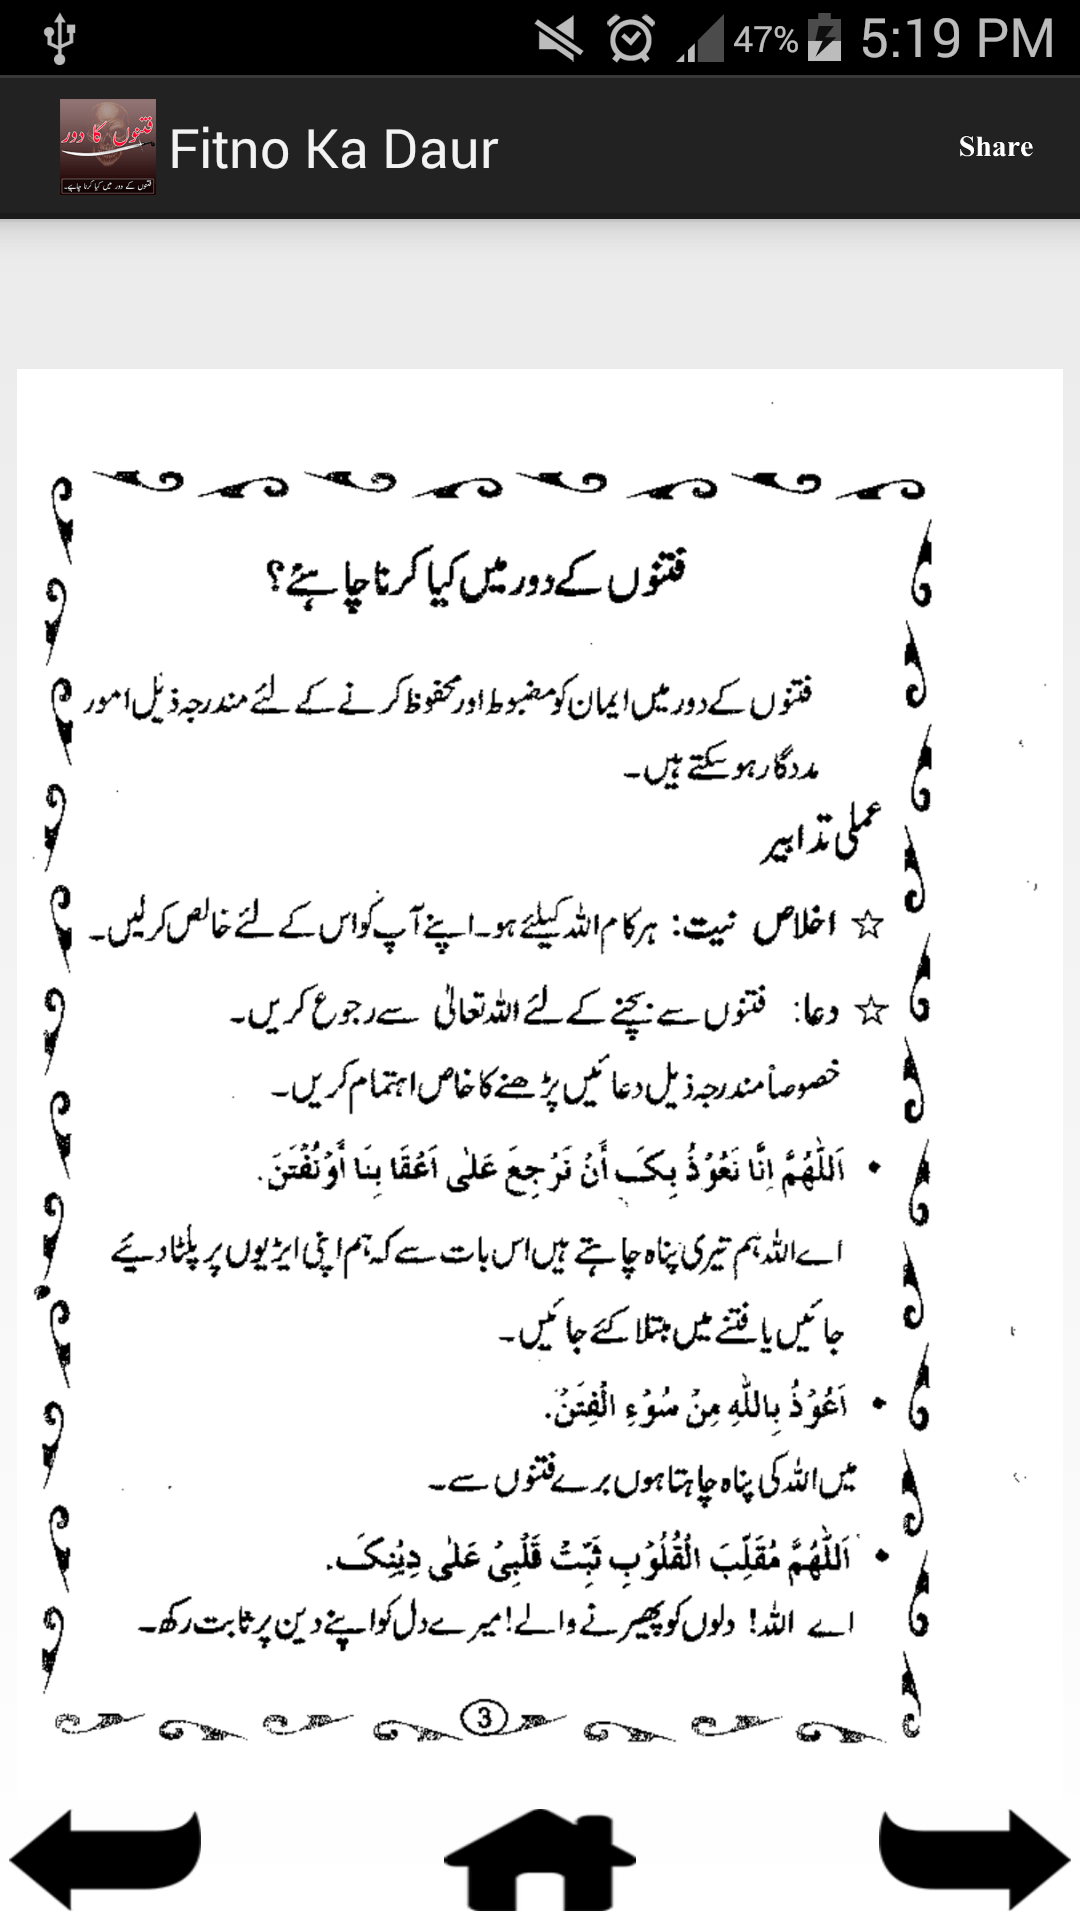 47% 5:19 PM
فتنوں کا دور
فتنوں کے دور میں کیا کرنا چاہیے۔
Fitno Ka Daur
Share
فتنوں کے دور میں کیا کرنا چاہئے؟
فتنوں کے دور میں ایمان کو مضبوط اور محفوظ کرنے کے لئے مندرجہ ذیل امور
مددگار ہو سکتے ہیں۔
عملی تدابیر
☆ اخلاص نیت: ہر کام اللہ کیلئے ہو۔ اپنے آپ کو اس کے لئے خالص کرلیں۔
☆ دعا: فتنوں سے بچنے کے لئے اللہ تعالیٰ سے رجوع کریں۔
خصوصاً مندرجہ ذیل دعائیں پڑھنے کا خاص اہتمام کریں۔
• اَللّٰهُمَّ اِنَّا نَعُوْذُ بِکَ أَنْ نَرْجِعَ عَلٰی اَعْقَا بِنَا أَوْنُفْتَنَ.
اے اللہ ہم تیری پناہ چاہتے ہیں اس بات سے کہ ہم اپنی ایڑیوں پر پلٹا دیئے
جائیں یا فتنے میں مبتلا کئے جائیں۔
• اَعُوْذُ بِاللّٰهِ مِنْ سُوْءِ الْفِتَنْ.
میں اللہ کی پناہ چاہتا ہوں برے فتنوں سے۔
• اَللّٰهُمَّ مُقَلِّبَ الْقُلُوْبِ ثَبِّتْ قَلْبِیْ عَلٰی دِیْنِکَ.
اے اللہ! دلوں کو پھیرنے والے! میرے دل کو اپنے دین پر ثابت رکھ۔
3